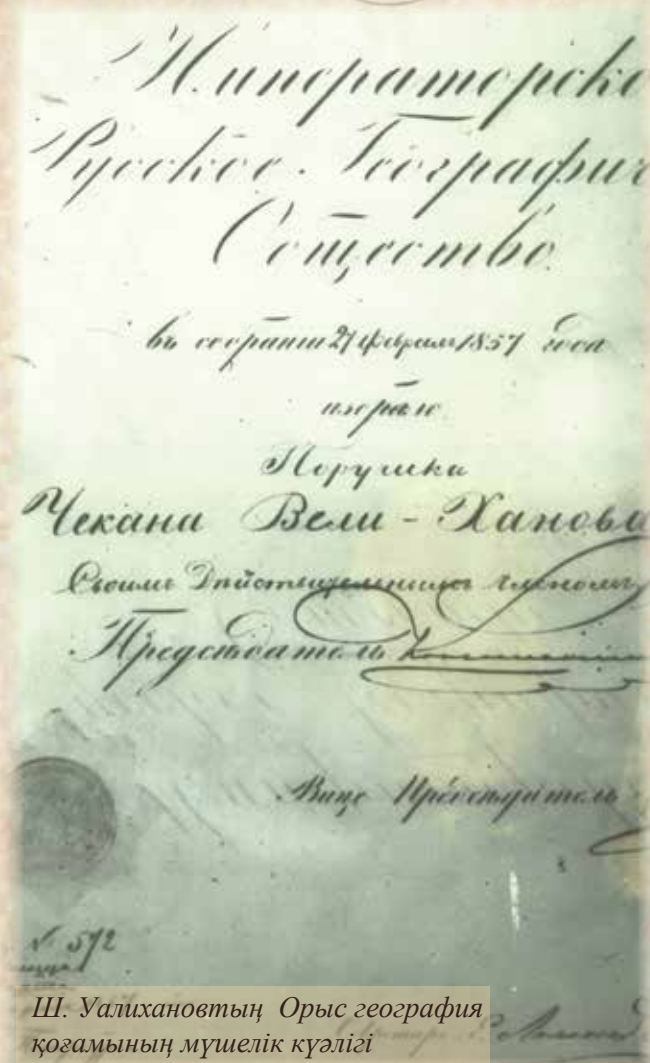 Императорско
Русское Географич
Общество
въ собранiи 27 февраля 1857 года
избрало
Поручика
Чекана Вели-Ханова
Своимъ Дѣйствительнымъ членомъ
Предсѣдатель
Вице Предсѣдатель
№ 572
Ш. Уалихановтың Орыс география
қоғамының мүшелік куәлігі